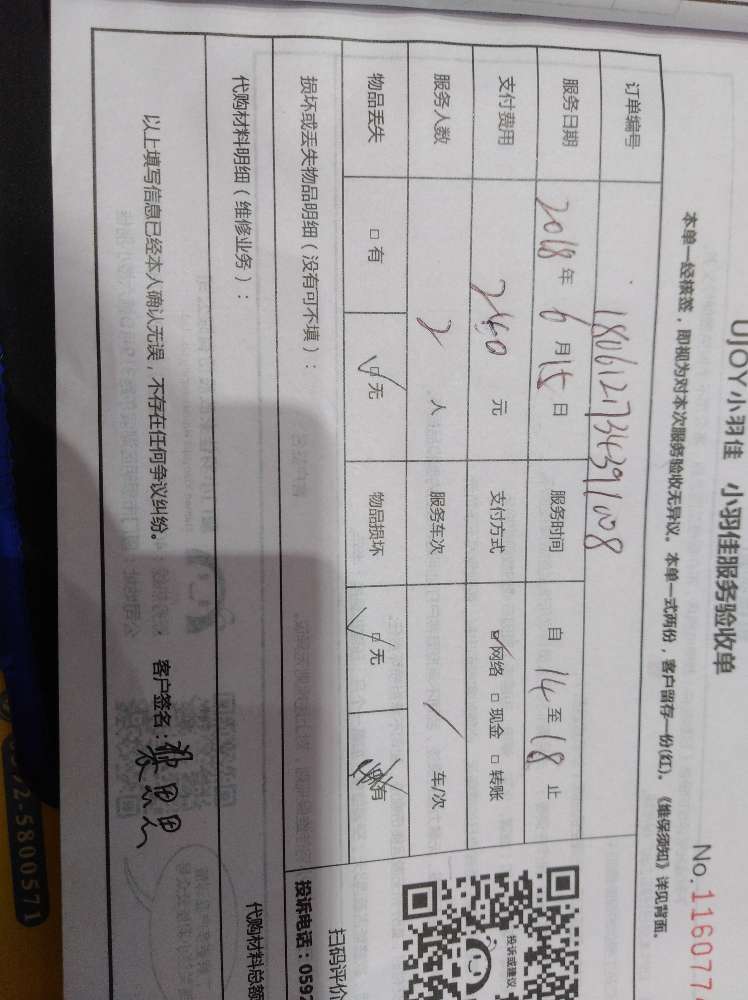 UJOY小羽佳 小羽佳服务验收单
No.116077
本单一经核签，即视为对本次服务验收无异议。本单一式两份，客户留存一份(红)。《维保须知》详见背面。
订单编号 1806121734391008
服务日期 2018年6月15日 服务时间 自14至18止
支付费用 240元 支付方式 网络 □现金 □转账
服务人数 2人 服务车次 / 车/次
物品丢失 □有 ☑无 物品损坏 ☑无 有
投诉或建议
扫码评价
损坏或丢失物品明细（没有可不填）：
投诉电话：0592
代购材料明细（维修业务）：
代购材料总额
以上填写信息已经本人确认无误，不存在任何争议纠纷。 客户签名：
0592-5800571